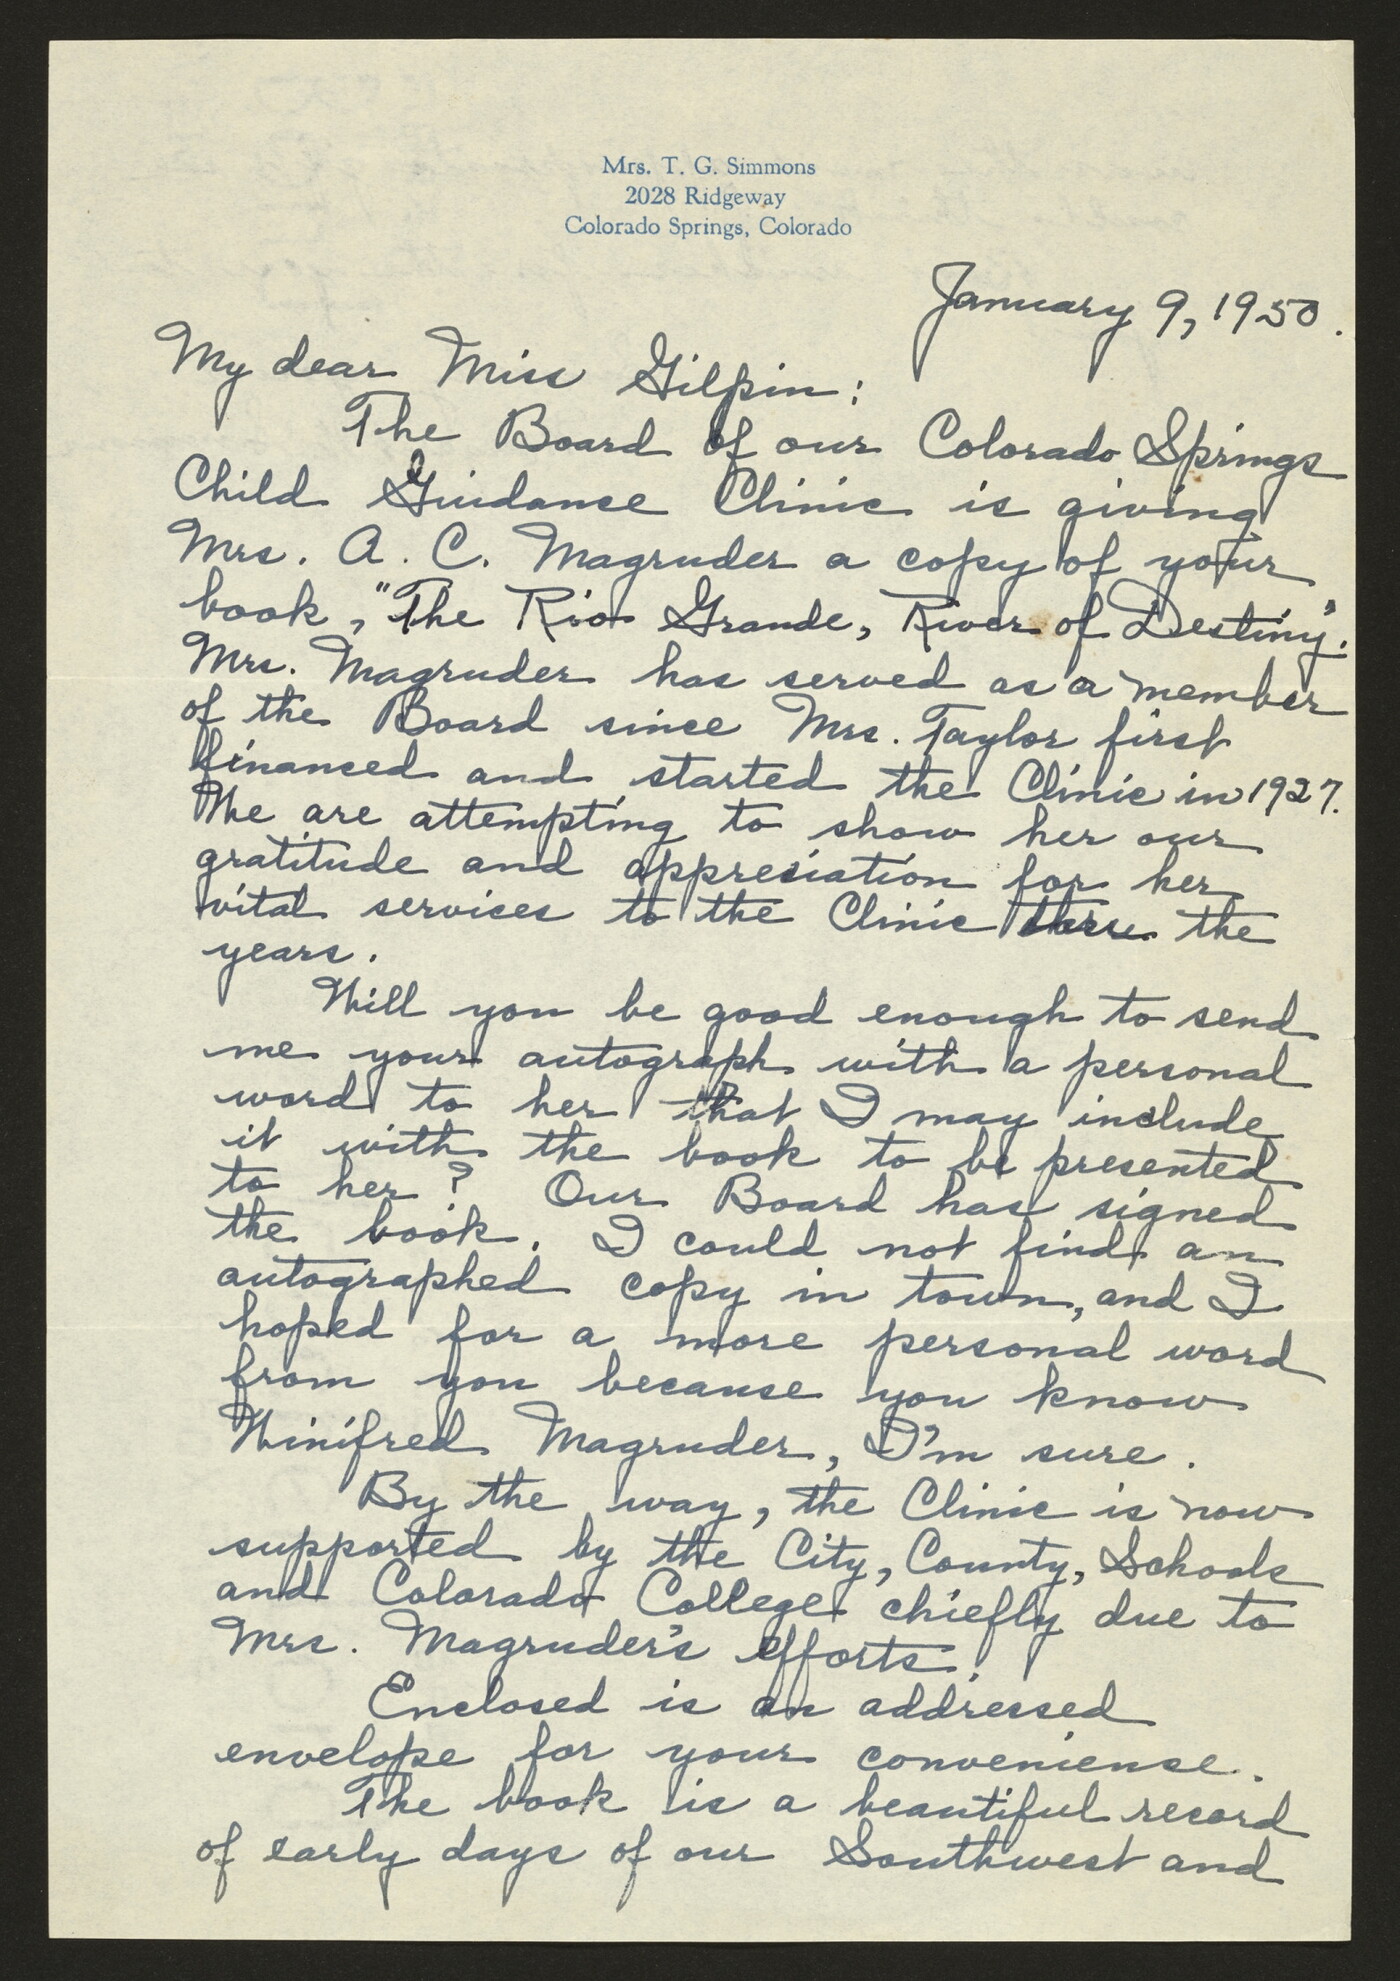 Mrs. T. G. Simmons
2028 Ridgeway
Colorado Springs, Colorado
January 9, 1950.
My dear Miss Gilpin:
The Board of our Colorado Springs
Child Guidance Clinic is giving
Mrs. A. C. Magruder a copy of your
book, "The Rio Grande, River of Destiny".
Mrs. Magruder has served as a member
of the Board since Mrs. Taylor first
financed and started the Clinic in 1927.
We are attempting to show her our
gratitude and appreciation for her
vital services to the Clinic thru the
years.
Will you be good enough to send
me your autograph with a personal
word to her that I may include
it with the book to be presented
to her? Our Board has signed
the book. I could not find an
autographed copy in town, and I
hoped for a more personal word
from you because you know
Winifred Magruder, I'm sure.
By the way, the Clinic is now
supported by the City, County, Schools
and Colorado College chiefly due to
Mrs. Magruder's efforts.
Enclosed is an addressed
envelope for your conveniense.
The book is a beautiful record
of early days of our Southwest and